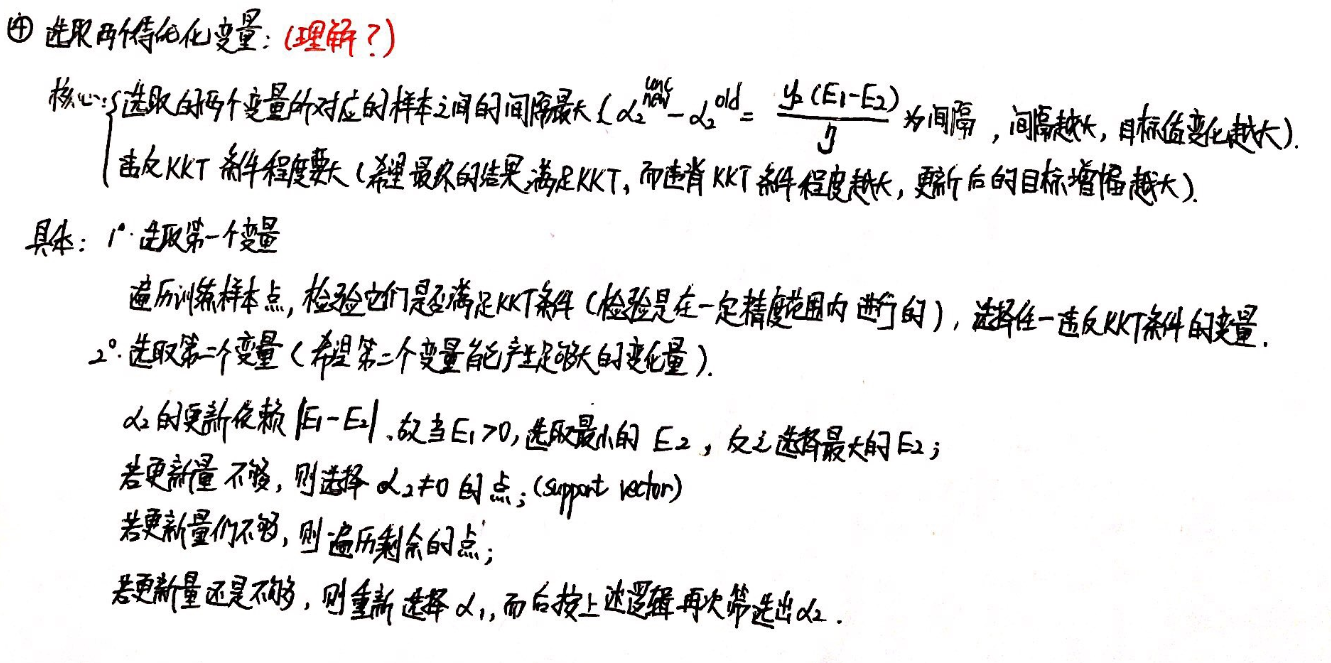 ④ 选取两个待优化变量：(理解？)
核心：{选取的两个变量所对应的样本之间的间隔最大 (α₂^{new,unc} - α₂^{old} = y₂(E₁-E₂)/η 为间隔，间隔越大，目标值变化越大).
违反KKT条件程度要大 (希望最终的结果满足KKT，而违背KKT条件程度越大，更新后的目标增幅越大).
具体：1°. 选取第一个变量
遍历训练样本点，检验它们是否满足KKT条件 (检验是在一定精度范围内进行的)，选择任一违反KKT条件的变量.
2°. 选取第二个变量 (希望第二个变量能产生足够大的变化量).
α₂的更新依赖|E₁-E₂|，故当E₁>0，选取最小的E₂，反之选择最大的E₂；
若更新量不够，则选择α₂≠0的点；(support vector)
若更新量仍不够，则遍历剩余的点；
若更新量还是不够，则重新选择α₁，而后按上述逻辑再次筛选出α₂.